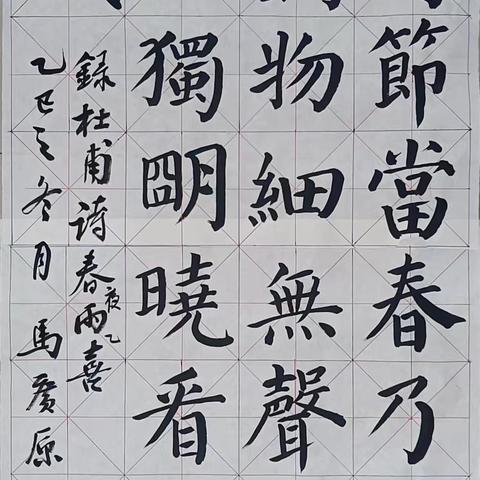 節當春乃
物細無聲
獨朙曉看
録杜甫詩春夜雨喜
乙巳之冬月馬廣原